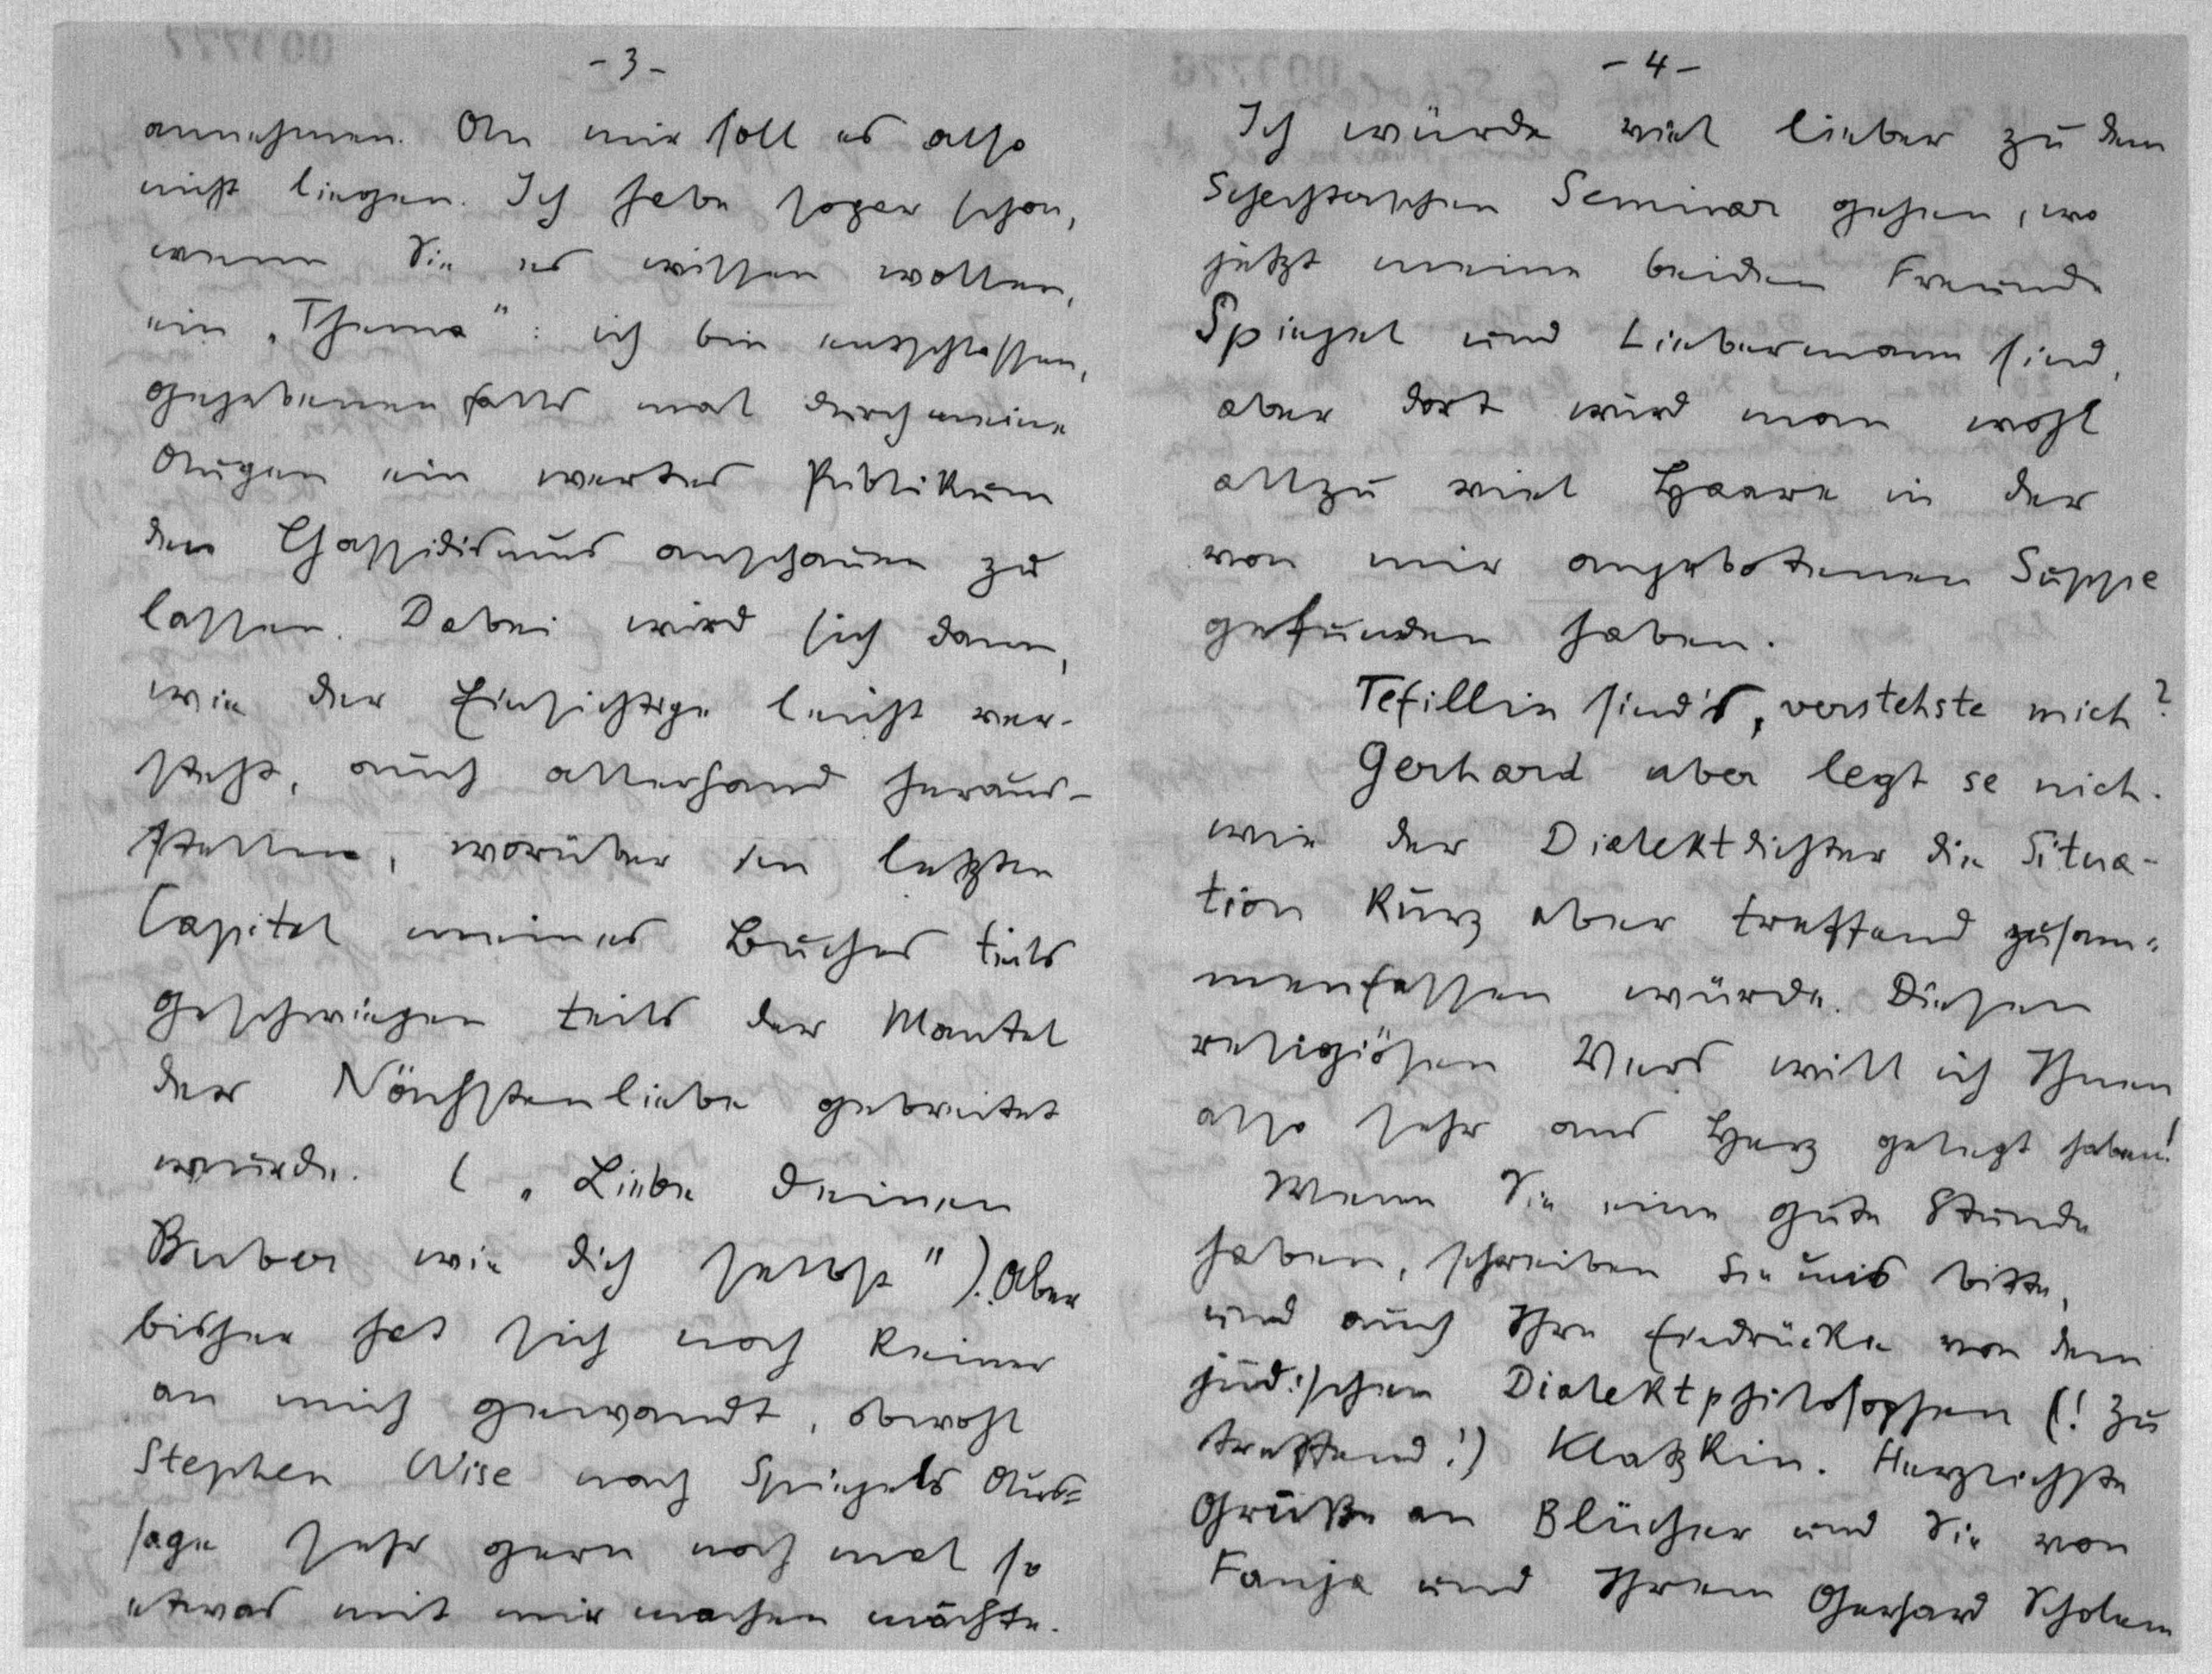 - 3 -
annehmen. An mir soll es also
nicht liegen. Ich habe sogar schon,
wenn Sie es wissen wollen,
ein „Thema": ich bin entschlossen,
gegebenenfalls mal durch meine
Augen ein wertes Publikum
den Chassidismus anschauen zu
lassen. Dabei wird sich dann,
wie der Einsichtige leicht ver-
steht, auch allerhand heraus-
stellen, worüber im letzten
Capitel meines Buches teils
geschwiegen teils der Mantel
der Nächstenliebe gebreitet
wurde. („Liebe deinen
Buber wie dich selbst"). Aber
bisher hat sich noch keiner
an mich gewandt, obwohl
Stephen Wise nach Spiegels Aus=
sage sehr gern noch mal so
etwas mit mir machen möchte.
- 4 -
Ich würde viel lieber zu dem
Schechterschen Seminar gehen, wo
jetzt meine beiden Freunde
Spiegel und Liebermann sind,
aber dort wird man wohl
allzu viel Haare in der
von mir angebotenen Suppe
gefunden haben.
Tefillin sind's, verstehste mich?
Gerhard aber legt se nich.
wie der Dialektdichter die Situa-
tion kurz aber treffend zusam=
menfassen würde. Diesen
religiösen Vers will ich Ihnen
also sehr ans Herz gelegt haben!
Wenn Sie eine gute Stunde
haben, schreiben Sie uns bitte,
und auch Ihre Eindrücke von dem
jüdischen Dialektphilosophen (! zu
treffend!) Klatzkin. Herzlichste
Grüße an Blücher und Sie von
Fanja und Ihrem Gerhard Scholem